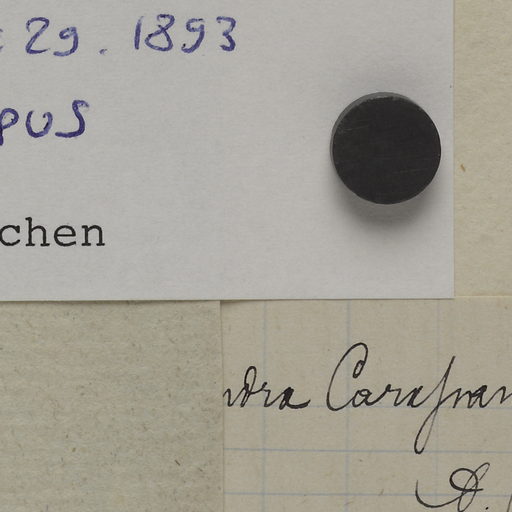 29. 1893
pus
chen
ndra Carassan
A.